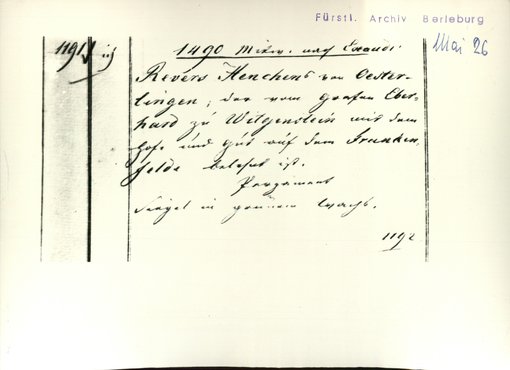 Fürstl. Archiv Berleburg
Mai 26
1191
1490 Mittw. nach Exaudi.
Revers Henchens von Oester-
lingen, der vom Grafen Eber-
hard zu Witgenstein mit dem
Hofe und Gut auf dem Franken
felde belehnt ist.
Pergament
Siegel in grünem Wachs.
1192